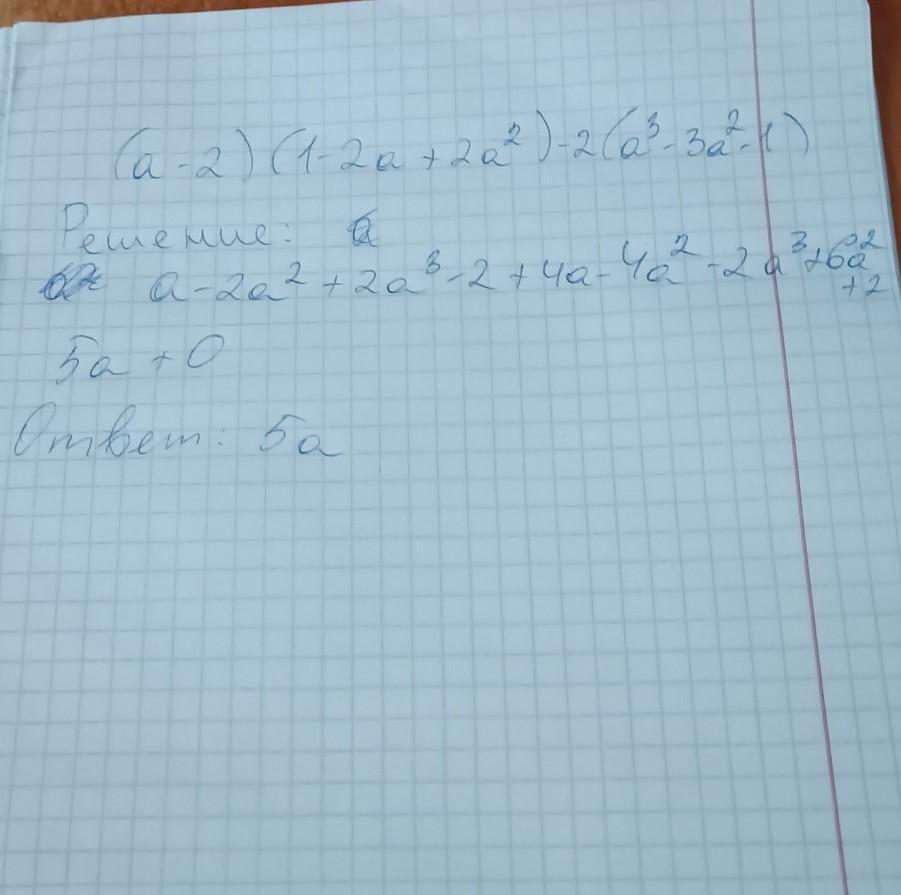 (a - 2) (1 - 2a + 2a²) - 2(a³ - 3a² - 1)
Решение:
a - 2a² + 2a³ - 2 + 4a - 4a² - 2a³ + 6a²
+2
5a + 0
Ответ: 5a